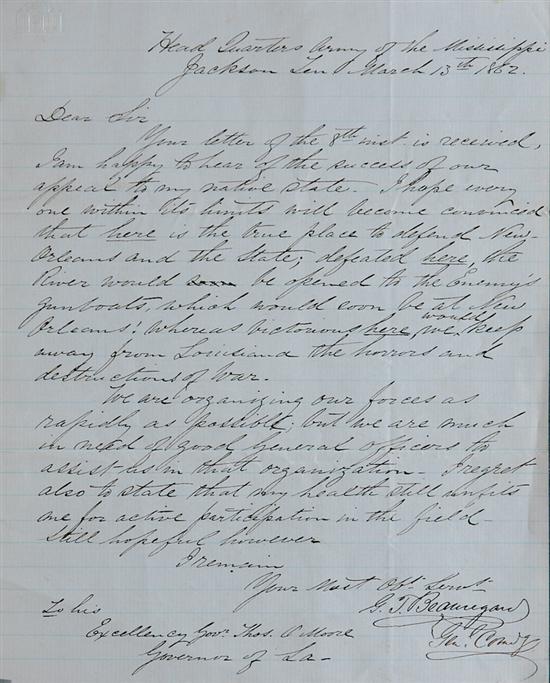 Head Quarters Army of the Mississippi
Jackson Ten March 13th 1862.
Dear Sir
Your letter of the 8th inst. is received,
I am happy to hear of the success of our
appeal to my native state. I hope every
one within its limits will become convinced
that here is the true place to defend New-
Orleans and the State; defeated here, the
River would soon be opened to the Enemy's
gunboats, which would soon be at New
Orleans; whereas victorious here, we would keep
away from Louisiana the horrors and
destructions of War.
We are organizing our forces as
rapidly as possible; but we are much
in need of good General officers to
assist us in that organization - I regret
also to state that my health still unfits
me for active participation in the field -
Still hopeful however
I remain
Your Most Obt Servt
G. T. Beauregard
Gen. Comdg
To his
Excellency Govr. Thos. O Moore
Governor of La -